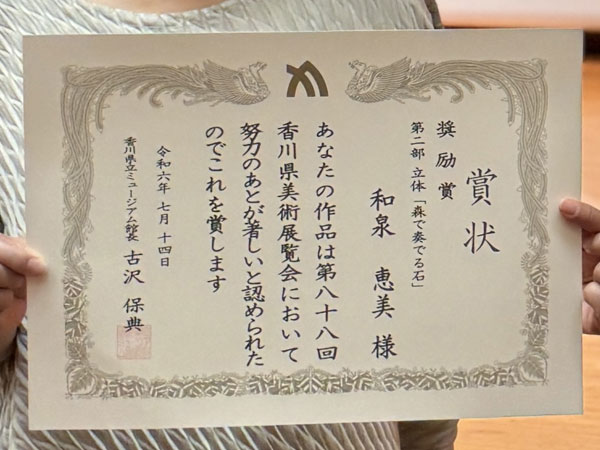 賞状
奨励賞
第二部 立体 「森で奏でる石」
和泉 恵美 様
あなたの作品は第八十八回
香川県美術展覧会において
努力のあとが著しいと認められた
のでこれを賞します
令和六年 七月 十四日
香川県立ミュージアム館長 古沢 保典